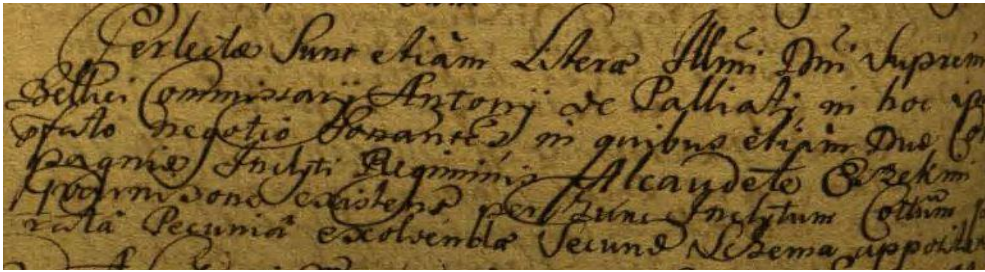 Perlectæ Sunt etiam Literæ Illmi Dni Suprem
Bellici Commissarij Antonij de Palliati, in hoc
pfato negotio Sonantes in quibus etiam Duæ Co
pagniæ Inclyti Regiminis Alcaudete
existens per hunc Inclytum Cottum
rata Pecunia exolvendæ Secund Schema apposit